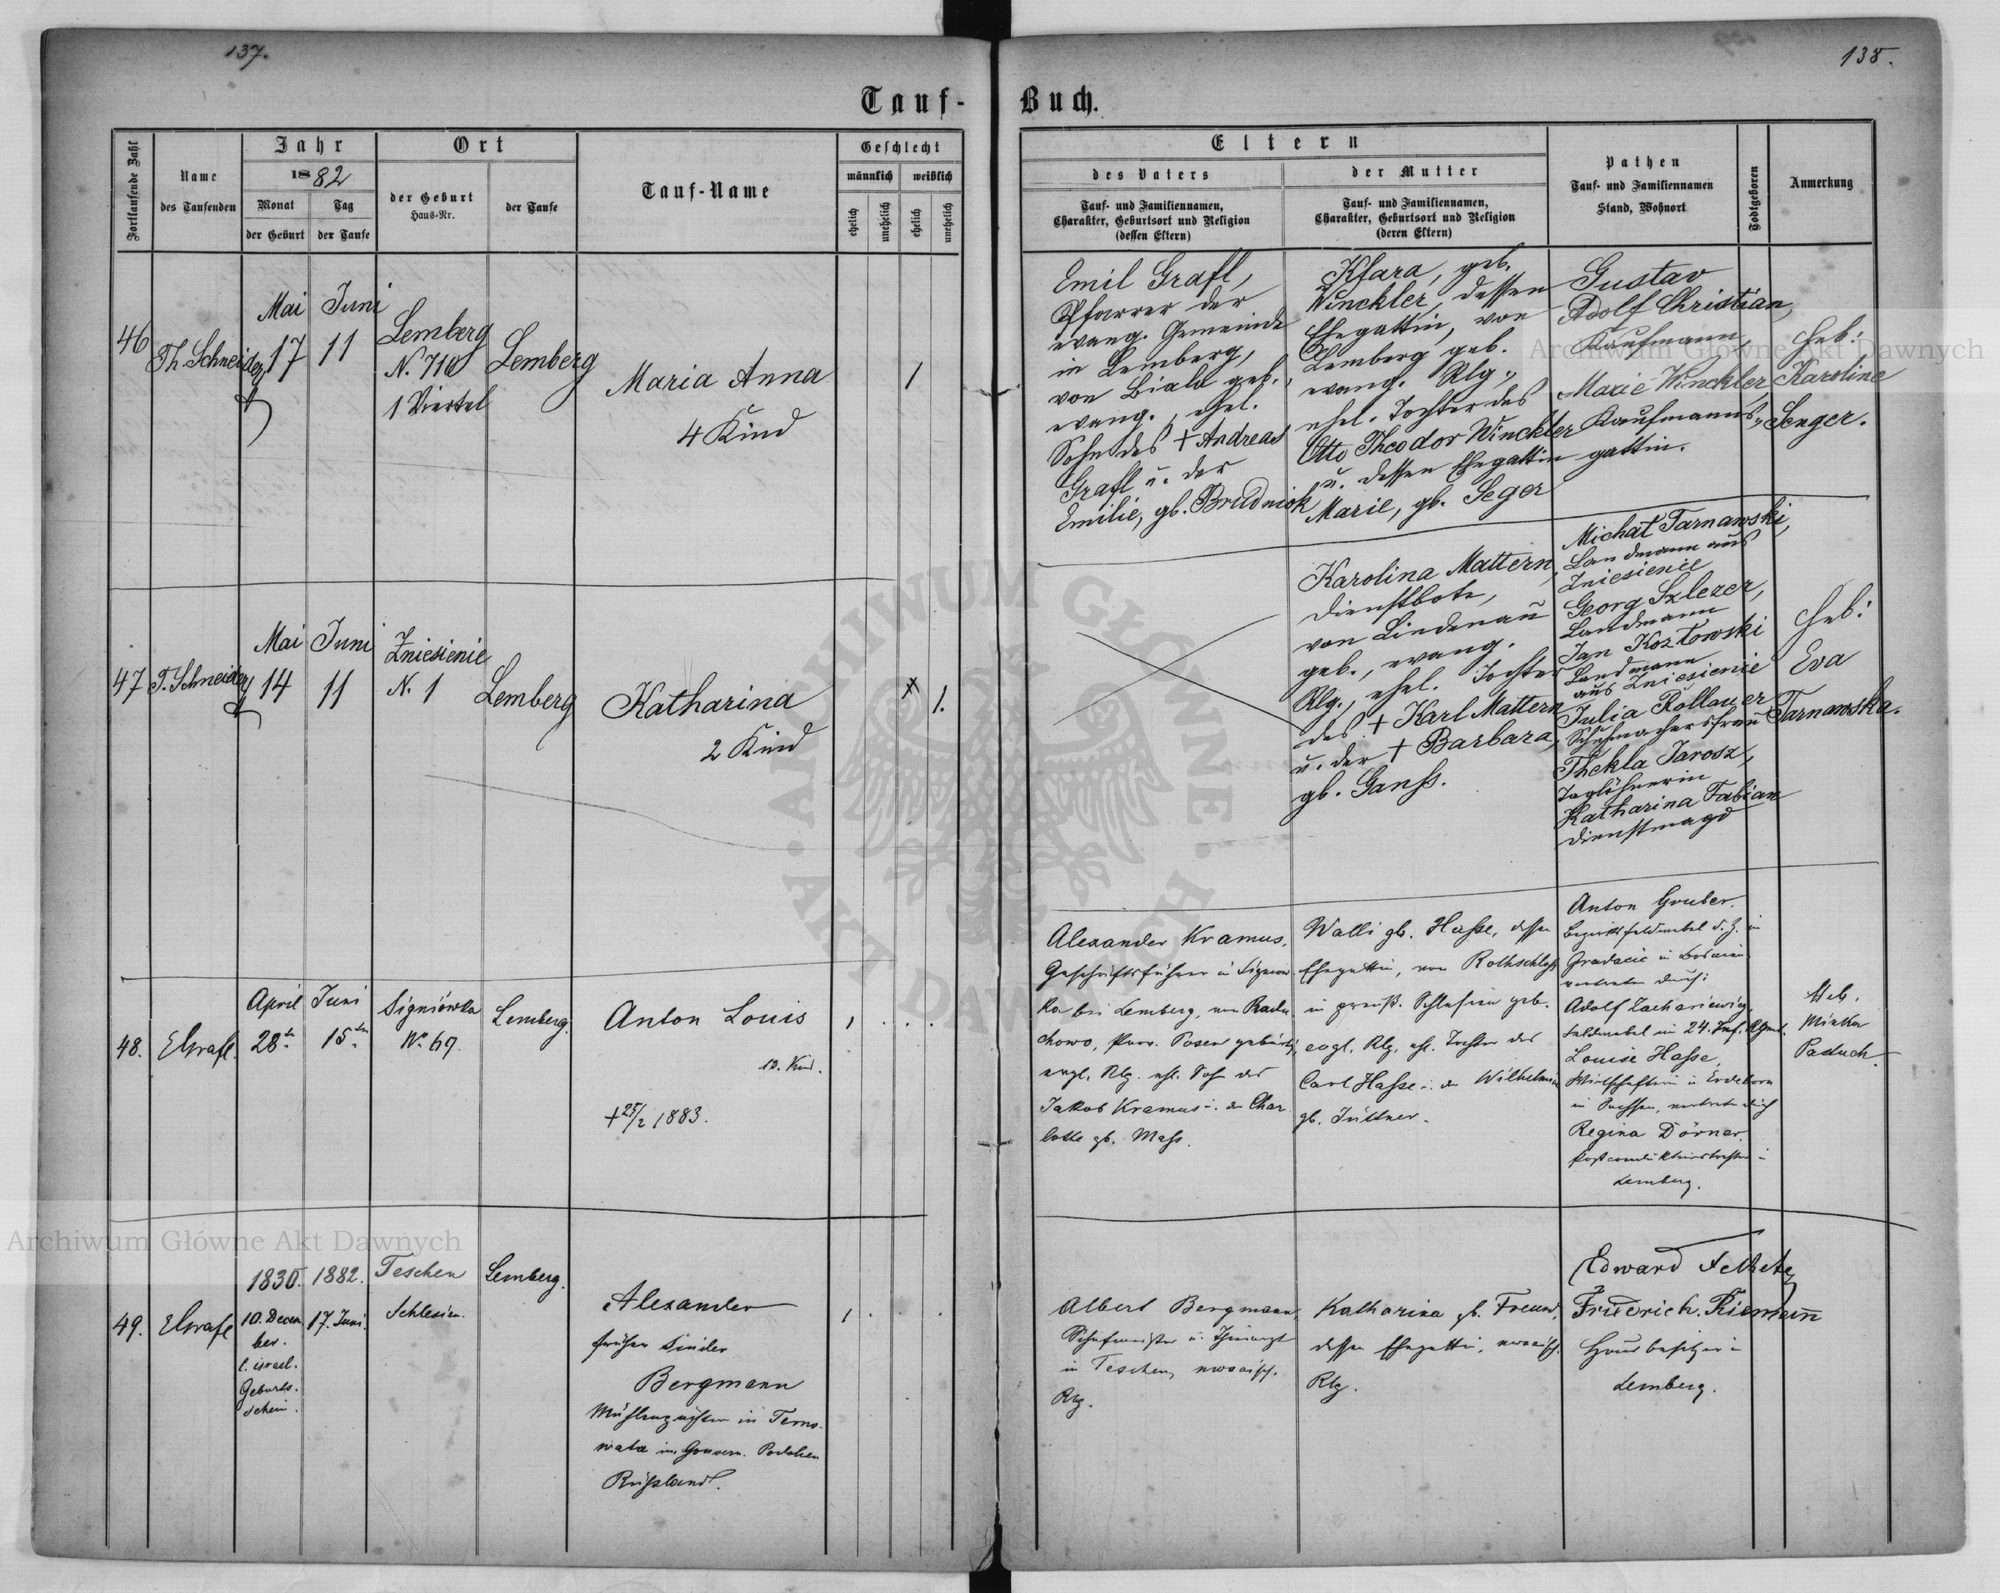 137.
138.
Tauf-Buch.
Fortlaufende Zahl
Name
des Taufenden
Jahr
1882
Monat
der Geburt
Tag
der Taufe
Ort
der Geburt
Haus-Nr.
der Taufe
Tauf-Name
Geschlecht
männlich
weiblich
ehelich
unehelich
ehelich
unehelich
Eltern
des Vaters
Tauf- und Familiennamen,
Charakter, Geburtsort und Religion
(dessen Eltern)
der Mutter
Tauf- und Familiennamen,
Charakter, Geburtsort und Religion
(deren Eltern)
Pathen
Tauf- und Familiennamen
Stand, Wohnort
Todtgeboren
Anmerkung
46
Th. Schneider
Mai
17
Juni
11
Lemberg
N. 710
1 Viertel
Lemberg
Maria Anna
4 Kind
1
Emil Grafl,
Pfarrer der
evang. Gemeinde
in Lemberg,
von Biala geb.,
evang., ehel.
Sohn des + Andreas
Grafl u. der
Emilie, gb. Brudniok
Klara, geb.
Winckler, dessen
Ehegattin, von
Lemberg geb.
evang. Rlg.,
ehel. Tochter des
Otto Theodor Winckler
u. dessen Ehegattin
Marie, gb. Seger
Gustav
Adolf Christian,
Kaufmann,
Marie Winckler,
Kaufmanns-
gattin.
Heb:
Karoline
Senger.
47
T. Schneider
Mai
14
Juni
11
Zniesienie
N. 1
Lemberg
Katharina
2 Kind
1.
Karolina Mattern,
Dienstbote,
von Lindenau
geb., evang.
Rlg., ehel. Tochter
des + Karl Mattern
u. der + Barbara,
gb. Ganß.
Michał Tarnawski,
Landmann aus
Zniesienie
Georg Szlezer,
Landmann
Jan Kozłowski
Landmann
aus Zniesienie
Julia Rollauer
Schuhmachersfrau
Thekla Jarosz,
Taglöhnerin
Katharina Fabian
Dienstmagd
Heb:
Eva
Tarnawska.
48.
EGrafl.
April
28ten
Juni
15ten
Signiówka
No 69.
Lemberg.
Anton Louis
10. Kind.
+ 25/2 1883.
1
Alexander Kramus,
Geschäftsführer in Signiow
ka bei Lemberg, von Radu
chowo, Prov. Posen gebürtig,
evgl. Rlg. ehl. Sohn des
Jakob Kramus u. der Char
lotte gb. Maß.
Walli gb. Hasse, dessen
Ehegattin, von Rothschloß
in preuß. Schlesien geb.
evgl. Rlg. ehl. Tochter des
Carl Hasse u. der Wilhelmine
gb. Jüttner.
Anton Gruber,
Bezirksfeldwebel d. Z. in
Gradacic in Bosnien
vertreten durch:
Adolf Zachariewicz,
Feldwebel im 24. Inf. Rgmt.
Louise Hasse,
Wirtschafterin in Erdeborn
in Sachsen, vertreten durch
Regina Dörner,
Postconducteurstochter in
Lemberg.
Heb.
Minka
Paduch.
49.
EGrafl
1830.
10. Decem
ber.
l. israel.
Geburts-
schein.
1882.
17. Juni.
Teschen
Schlesien.
Lemberg.
Alexander
früher Sinder
Bergmann
Mühlenzurichter in Terno-
wata im Gouvern. Podolien
Rußland.
1
Albert Bergmann,
in Teschen, mosaisch.
Rlg.
Katharina gb. Freund,
dessen Ehegattin, mosaisch.
Rlg.
Edward
Friedrich Riemann
Hausbesitzer in
Lemberg.
Archiwum Główne Akt Dawnych
Archiwum Główne Akt Dawnych
ARCHIWUM GŁÓWNE AKT DAWNYCH